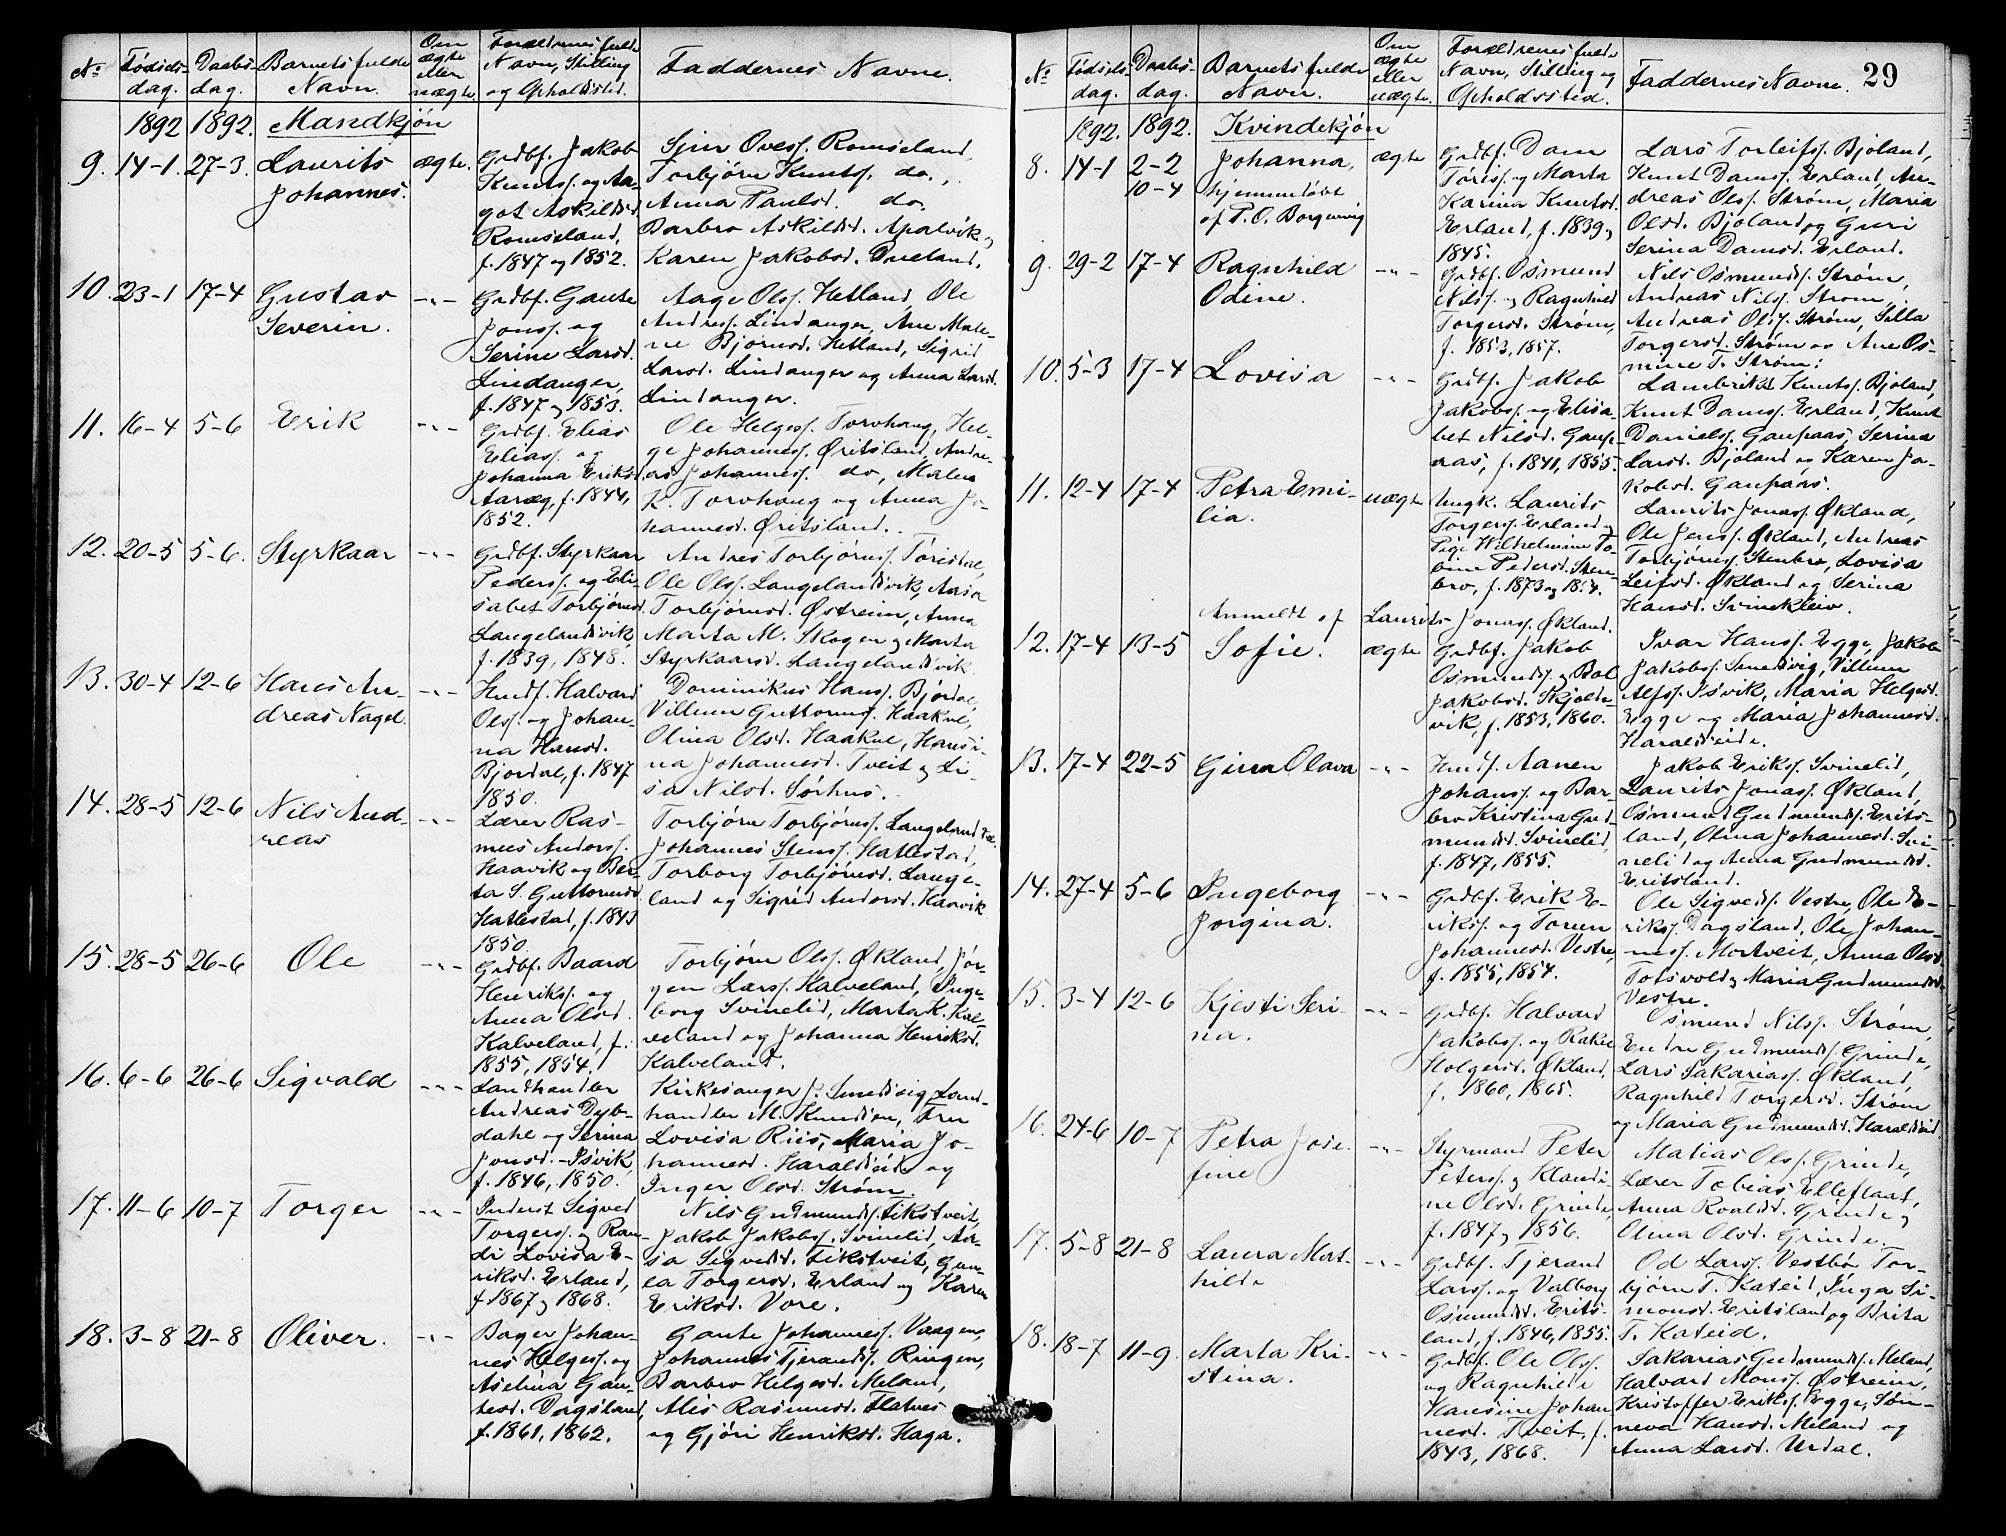 No
Fødsels-
dag.
Daabs-
dag.
Barnets fulde
Navn.
Om
ægte
eller
uægte.
Forældrenes fulde
Navn, Stilling
og Opholdssted.
Faddernes Navne.
1892
1892.
Mandkjøn
9. 14-1 27-3. Laurits
Johannes.
ægte.
Grdbf. Jakob
Knuts. og Aa-
got Askildsd.
Romseland,
f. 1847 og 1852.
Sjur Oves. Romseland,
Torbjørn Knuts. do.,
Anna Paulsd. do.
Barbro Askildsd. Apalvik og
Karen Jakobsd. Dueland.
10. 23-1 17-4 Gustav
Severin.
-"-
Grdbf. Gaute
Jons. og
Serine Larsd.
Lindanger,
f. 1847 og 1853.
Aage Ols. Hetland, Ole
Andres. Lindanger, Ane Male-
ne Bjørnsd. Hetland, Sigrid
Larsd. Lindanger og Anna Larsd.
Lindanger.
11. 16-4 5-6 Erik
-"-
Grdbf. Elias
Elias. og
Johanna Eriksd.
Aaræg, f. 1844,
1852.
Ole Helges. Torvhaug, Hel-
ge Johannes. Øritsland, Andre-
as Johannes. do, Malene
K. Torvhaug og Anna Jo-
hannesd. Øritsland.
12. 20-5 5-6. Styrkaar
-"-
Grdbf. Styrkaar
Peders. og Eli-
sabet Torbjørnsd.
Langelandsvik,
f. 1839, 1848.
Andres Torbjørns. Tørisdal,
Ole Ols. Langelandsvik, Aasa
Torbjørnsd. Østreim, Anna
Marta M. Skogen og Marta
Styrkaarsd. Langelandsvik.
13. 30-4 12-6 Hans An-
dreas Nagel.
-"-
Husf. Halvard
Ols. og Johan-
na Hansd.
Bjordal, f. 1847
1850.
Dominikus Hans. Bjørdal,
Villum Guttorms. Haakul,
Olina Olsd. Haakul, Hansi-
na Johannesd. Tveit og Li-
sa Nilsd. Sørhus.
14. 28-5 12-6 Nils And-
reas
-"-
Lærer Ras-
mus Anders.
Haavik og Ber-
ta S. Guttormsd.
Hatlestad, f. 1843
1850.
Torbjørn Torbjørns. Langeland,
Johannes Stens. Hatlestad,
Torborg Torbjørnsd. Lange-
land og Sigrid Andersd. Haavik
15. 28-5 26-6 Ole
-"-
Grdbf. Baard
Henriks. og
Anna Olsd.
Kalveland, f.
1855, 1854.
Torbjørn Ols. Økland, Jør-
gen Lars. Halveland, Inge-
borg Svinelid, Marta K. Kal-
veland og Johanna Henriksd.
Kalveland.
16. 6-6 26-6 Sigvald
-"-
Landhandler
Andreas Dyb-
dahl og Serina
Jonsd. Isvik,
f. 1846, 1850.
Kirkesanger J. Smedsvig, Land-
handler M. Knudsen, Fru
Lovisa Riis, Maria Jo-
hannesd. Haraldseid og
Inger Olsd. Strøm.
17. 11-6 10-7 Torger
-"-
Inderst Sigved
Torgers. og Ran-
di Lovisa E-
riksd. Erland,
f. 1867 og 1868.
Nils Gudmunds. Tikstveit,
Jakob Jakobs. Svinelid, Aa-
sa Sigvedsd. Tikstveit, Gun-
la Torgersd. Erland og Karen
Eriksd. Vore.
18. 3-8 21-8 Oliver.
-"-
Bager Johan-
nes Helges. og
Aselina Gau-
tesd. Dagsland,
f. 1861, 1862.
Gaute Johannes. Vaagen,
Johannes Tjerands. Ringen,
Barbro Helgesd. Meland,
Alis Rasmusd. Flatnes
og Gjøri Henriksd. Haga.
No
Fødsels-
dag.
Daabs-
dag.
Barnets fulde
Navn.
Om
ægte
eller
uægte.
Forældrenes fulde
Navn, Stilling og
Opholdssted.
Faddernes Navne.
29
1892.
1892.
Kvindekjøn
8. 14-1 2-2
10-4
Johanna,
hjemmedøbt
af P. O. Borgenvig
ægte
Grdbf. Dam
Tøres. og Marta
Karina Knutsd.
Erland, f. 1839 og
1845.
Lars Torleifs. Bjoland,
Knut Dams. Erland, An-
dreas Ols. Strøm, Maria
Olsd. Bjoland og Guri
Serina Damsd. Erland.
9. 29-2 17-4 Ragnhild
Odine.
-"-
Grdbf. Osmund
Nils. og Ragnhild
Torgersd. Strøm,
f. 1853, 1857.
Nils Osmunds. Strøm,
Andreas Nils. Strøm,
Andreas Ols. Strøm, Silla
Torgersd. Strøm og Ane Os-
mine T. Strøm.
10. 5-3 17-4 Lovisa
-"-
Grdbf. Jakob
Jakobs. og Elisa-
bet Nilsd. Gaup-
aas, f. 1841, 1855.
Lambrikt Knuts. Bjoland,
Knut Dams. Erland, Knut
Daniels. Gaupaas, Serina
Larsd. Bjoland og Karen Ja-
kobsd. Gaupaas.
11. 12-4 17-4 Petra Emi-
lia.
uægte
Ungk. Laurits
Torgers. Erland og
Pige Wilhelmine To-
bine Pedersd. Sten-
bro, f. 1873 og
Laurits Jonas. Økland,
Ole Jens. Økland, Andreas
Torbjørns. Stenbro, Lovisa
Leifsd. Økland og Serina
Hansd. Svinekleiv.
Anmeldt af Laurits Jonas. Økland.
12. 17-4 13-5 Sofie.
ægte
Grdbf. Jakob
Osmunds. og Bol
Jakobsd. Skjolds-
vik, f. 1853, 1860.
Ivar Hans. Egge, Jakob
Jakobs. Smedsvig, Villum
Alfs. Isvik, Maria Helgesd.
Egge og Maria Johannesd.
Haraldseide.
13. 17-4 22-5 Gina Olava
-"-
Husf. Aanen
Johans. og Bar-
bro Kristina Gud-
mundsd. Svinelid,
f. 1847, 1855.
Jakob Eriks. Svinelid,
Laurits Jonas. Økland,
Osmund Gudmunds. Erits-
land, Olina Johannesd. Svi-
nelid og Anna Gudmundsd.
Eritsland.
14. 27-4 5-6 Ingeborg
Jorgina.
-"-
Grdbf. Erik E-
riks. og Toren
Johannesd. Vestre,
f. 1855, 1854.
Ole Sigveds. Vestre, Ole E-
riks. Dagsland, Ole Johan-
nes. Mortveit, Anna Olsd.
Totsvold og Maria Gudmundsd.
Vestre.
15. 3-4 12-6 Kjesti Seri-
na.
-"-
Grdbf. Halvard
Jakobs. og Rakel
Holgersd. Økland,
f. 1860, 1865.
Osmund Nils. Strøm,
Endre Gudmunds. Grinde,
Lars Sakarias. Økland,
Ragnhild Torgersd. Strøm
og Maria Gudmundsd. Haraldseid
16. 24-6 10-7 Petra Jose-
fine
-"-
Styrmand Peter
Peters. og Klaudi-
ne Olsd. Grinde,
f. 1847 og 1856.
Matias Ols. Grinde,
Lærer Tobias Elleflaat,
Anna Roaldsd. Grinde og
Olina Olsd. Grinde.
17. 5-8 21-8 Laura Mat-
hilde
-"-
Grdbf. Tjerand
Lars. og Valborg
Osmundsd. Erits-
land, f. 1846, 1855.
Od Lars. Vestbø, Tor-
bjørn T. Kateid, Inga Si-
monsd. Eritsland og Brita
T. Kateid.
18. 18-7 11-9. Marta Kri-
stina.
-"-
Grdbf. Ole Ols.
og Ragnhilde
Hansine Johan-
nesd. Tveit, f.
1843, 1868.
Sakarias Gudmunds. Meland,
Halvard Mons. Østreim,
Kristoffer Eriks. Egge, Søn-
neva Hansd. Meland og
Anna Larsd. Urdal.